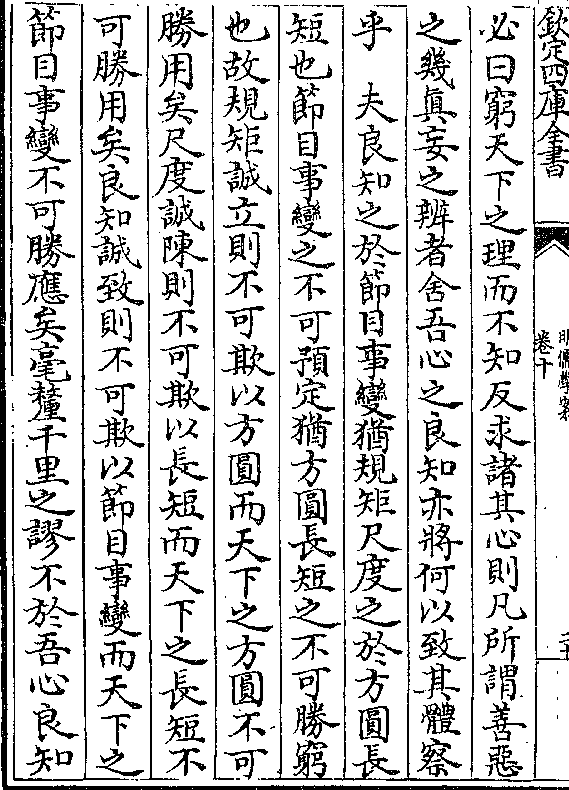 欽定四庫全書
明儒學案
卷十
二十
必曰窮天下之理而不知反求諸其心則凡所謂善惡
之幾真妄之辨者舍吾心之良知亦將何以致其體察
乎　夫良知之於節目事變猶規矩尺度之於方圓長
短也節目事變之不可預定猶方圓長短之不可勝窮
也故規矩誠立則不可欺以方圓而天下之方圓不可
勝用矣尺度誠陳則不可欺以長短而天下之長短不
可勝用矣良知誠致則不可欺以節目事變而天下之
節目事變不可勝應矣毫釐千里之謬不於吾心良知